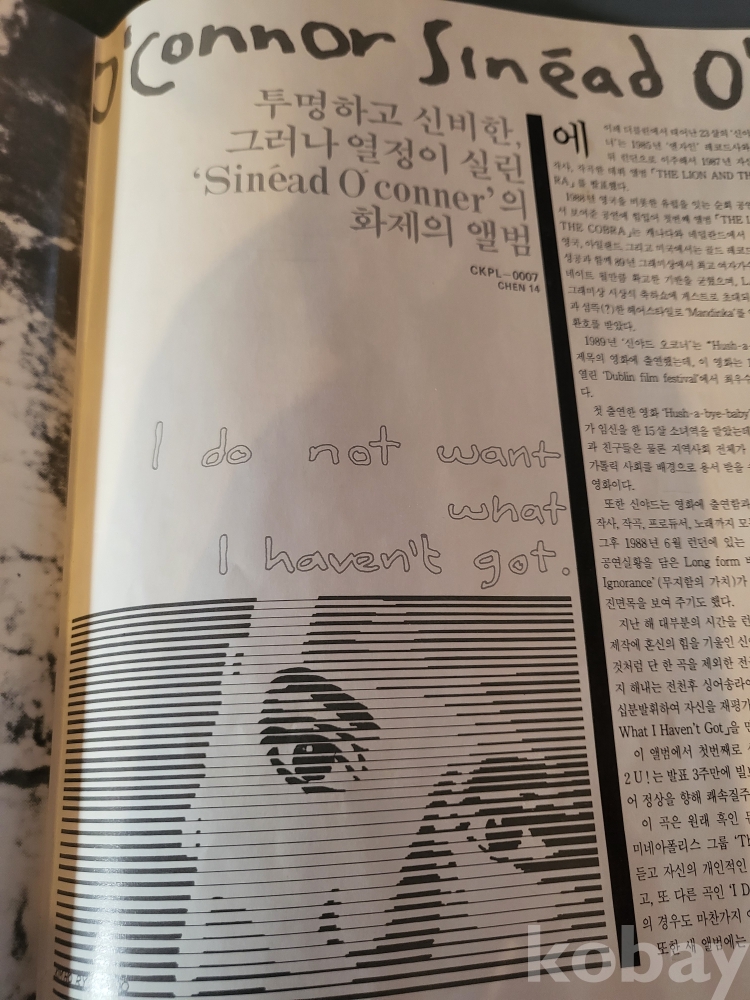 O'Connor Sinéad O'
투명하고 신비한,
그러나 열정이 실린
'Sinéad O'conner'의
화제의 앨범
CKPL-0007
CHEN 14
I do not want
what
I haven't got.
에
이레 더블린에서 태어난 23살의 '신
너'는 1985년 '앤자인' 레코드사와
뒤 런던으로 이주해서 1987년 자
작사, 작곡한 데뷔 앨범 「THE LION AND TH
RA」를 발표했다.
1988년 영국을 비롯한 유럽을 잇는 순회 공연
서 보여준 공연에 힘입어 첫번째 앨범 「THE L
THE COBRA」는 캐나다와 네덜란드에서
영국, 아일랜드 그리고 미국에서는 골드 레코드
성공과 함께 89년 그래미상에서 최고 여자가수
네이트 될만큼 확고한 기반을 굳혔으며, L
그래미상 시상식 축하쇼에 게스트로 초대되
과 섬뜩(?)한 헤어스타일로 'Mandinka'를
환호를 받았다.
1989년 '신야드 오코너'는 "Hush-a-
제목의 영화에 출연했는데, 이 영화는
열린 'Dublin film festival'에서 최우수
다.
첫 출연한 영화 'Hush-a-bye-baby'
가 임신을 한 15살 소녀역을 맡았는데
과 친구들은 물론 지역사회 전체가
가톨릭 사회를 배경으로 용서 받을 수
영화이다.
또한 신야드는 영화에 출연함과
작사, 작곡, 프로듀서, 노래까지 모
그후 1988년 6월 런던에 있는
공연실황을 담은 Long form 비
Ignorance' (무지함의 가치)가
진면목을 보여 주기도 했다.
지난 해 대부분의 시간을 런
제작에 혼신의 힘을 기울인 신
것처럼 단 한 곡을 제외한 전
지 해내는 전천후 싱어송라이
십분발휘하여 자신을 재평가
What I Haven't Got」을 만
이 앨범에서 첫번째로 싱
2 U!는 발표 3주만에 빌보
어 정상을 향해 쾌속질주
이 곡은 원래 흑인 뮤
미네아폴리스 그룹 'Th
듣고 자신의 개인적인
고, 또 다른 곡인 'I D
의 경우도 마찬가지
또한 새 앨범에는
kobay